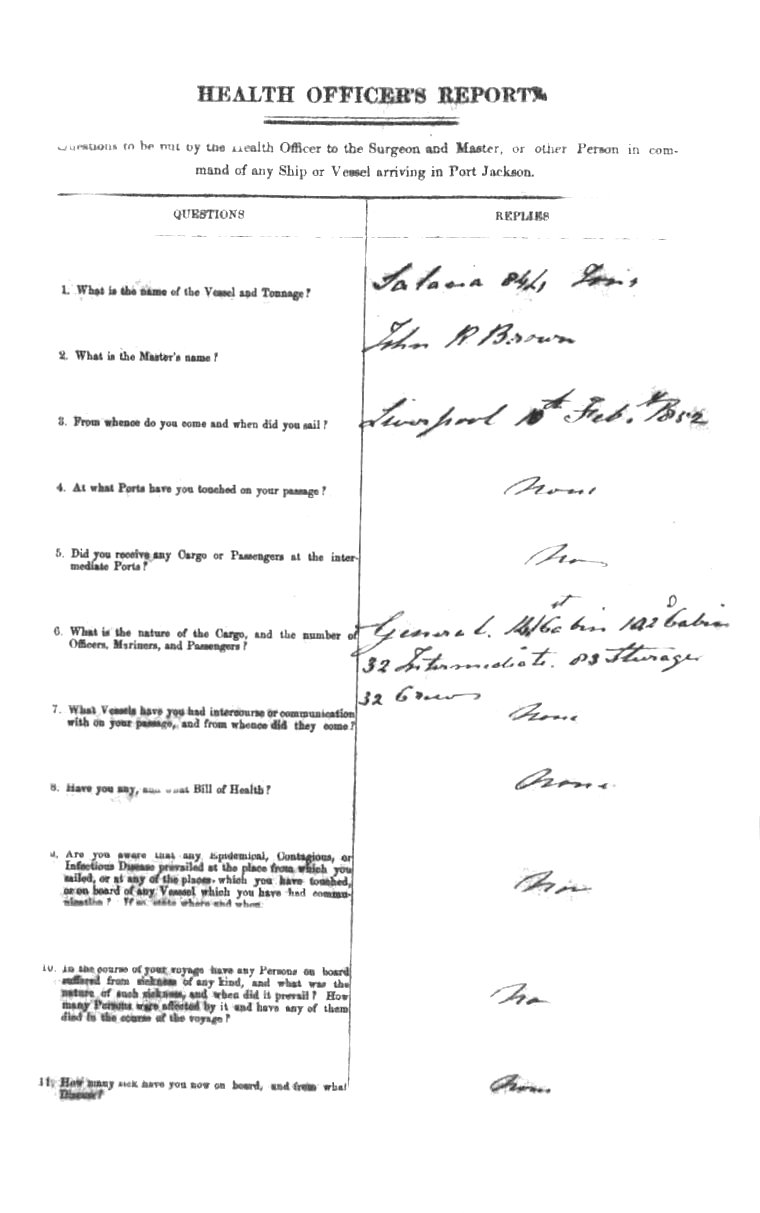 HEALTH OFFICER'S REPORT
Questions to be put by the Health Officer to the Surgeon and Master, or other Person in com-
mand of any Ship or Vessel arriving in Port Jackson.
QUESTIONS
REPLIES
1. What is the name of the Vessel and Tonnage?
Tons
2. What is the Master's name?
John R Brown
3. From whence do you come and when did you sail?
Liverpool 10th Feb.y 1852
4. At what Ports have you touched on your passage?
None
5. Did you receive any Cargo or Passengers at the inter-
mediate Ports?
No
6. What is the nature of the Cargo, and the number of
Officers, Mariners, and Passengers?
General. Cabin Cabin
32 Intermediate. 83 Steerage
32 Crew
7. What Vessels have you had intercourse or communication
with on your passage, and from whence did they come?
None
8. Have you any, and what Bill of Health?
None
9. Are you aware that any Epidemical, Contagious, or
Infectious Disease prevailed at the place from which you
sailed, or at any of the places which you have touched,
or on board of any Vessel which you have had commu-
nication? If so, state where and when
No
10. In the course of your voyage have any Persons on board
suffered from sickness of any kind, and what was the
nature of such sickness, and when did it prevail? How
many Persons were affected by it and have any of them
died in the course of the voyage?
No
11. How many sick have you now on board, and from what
Disease?
None